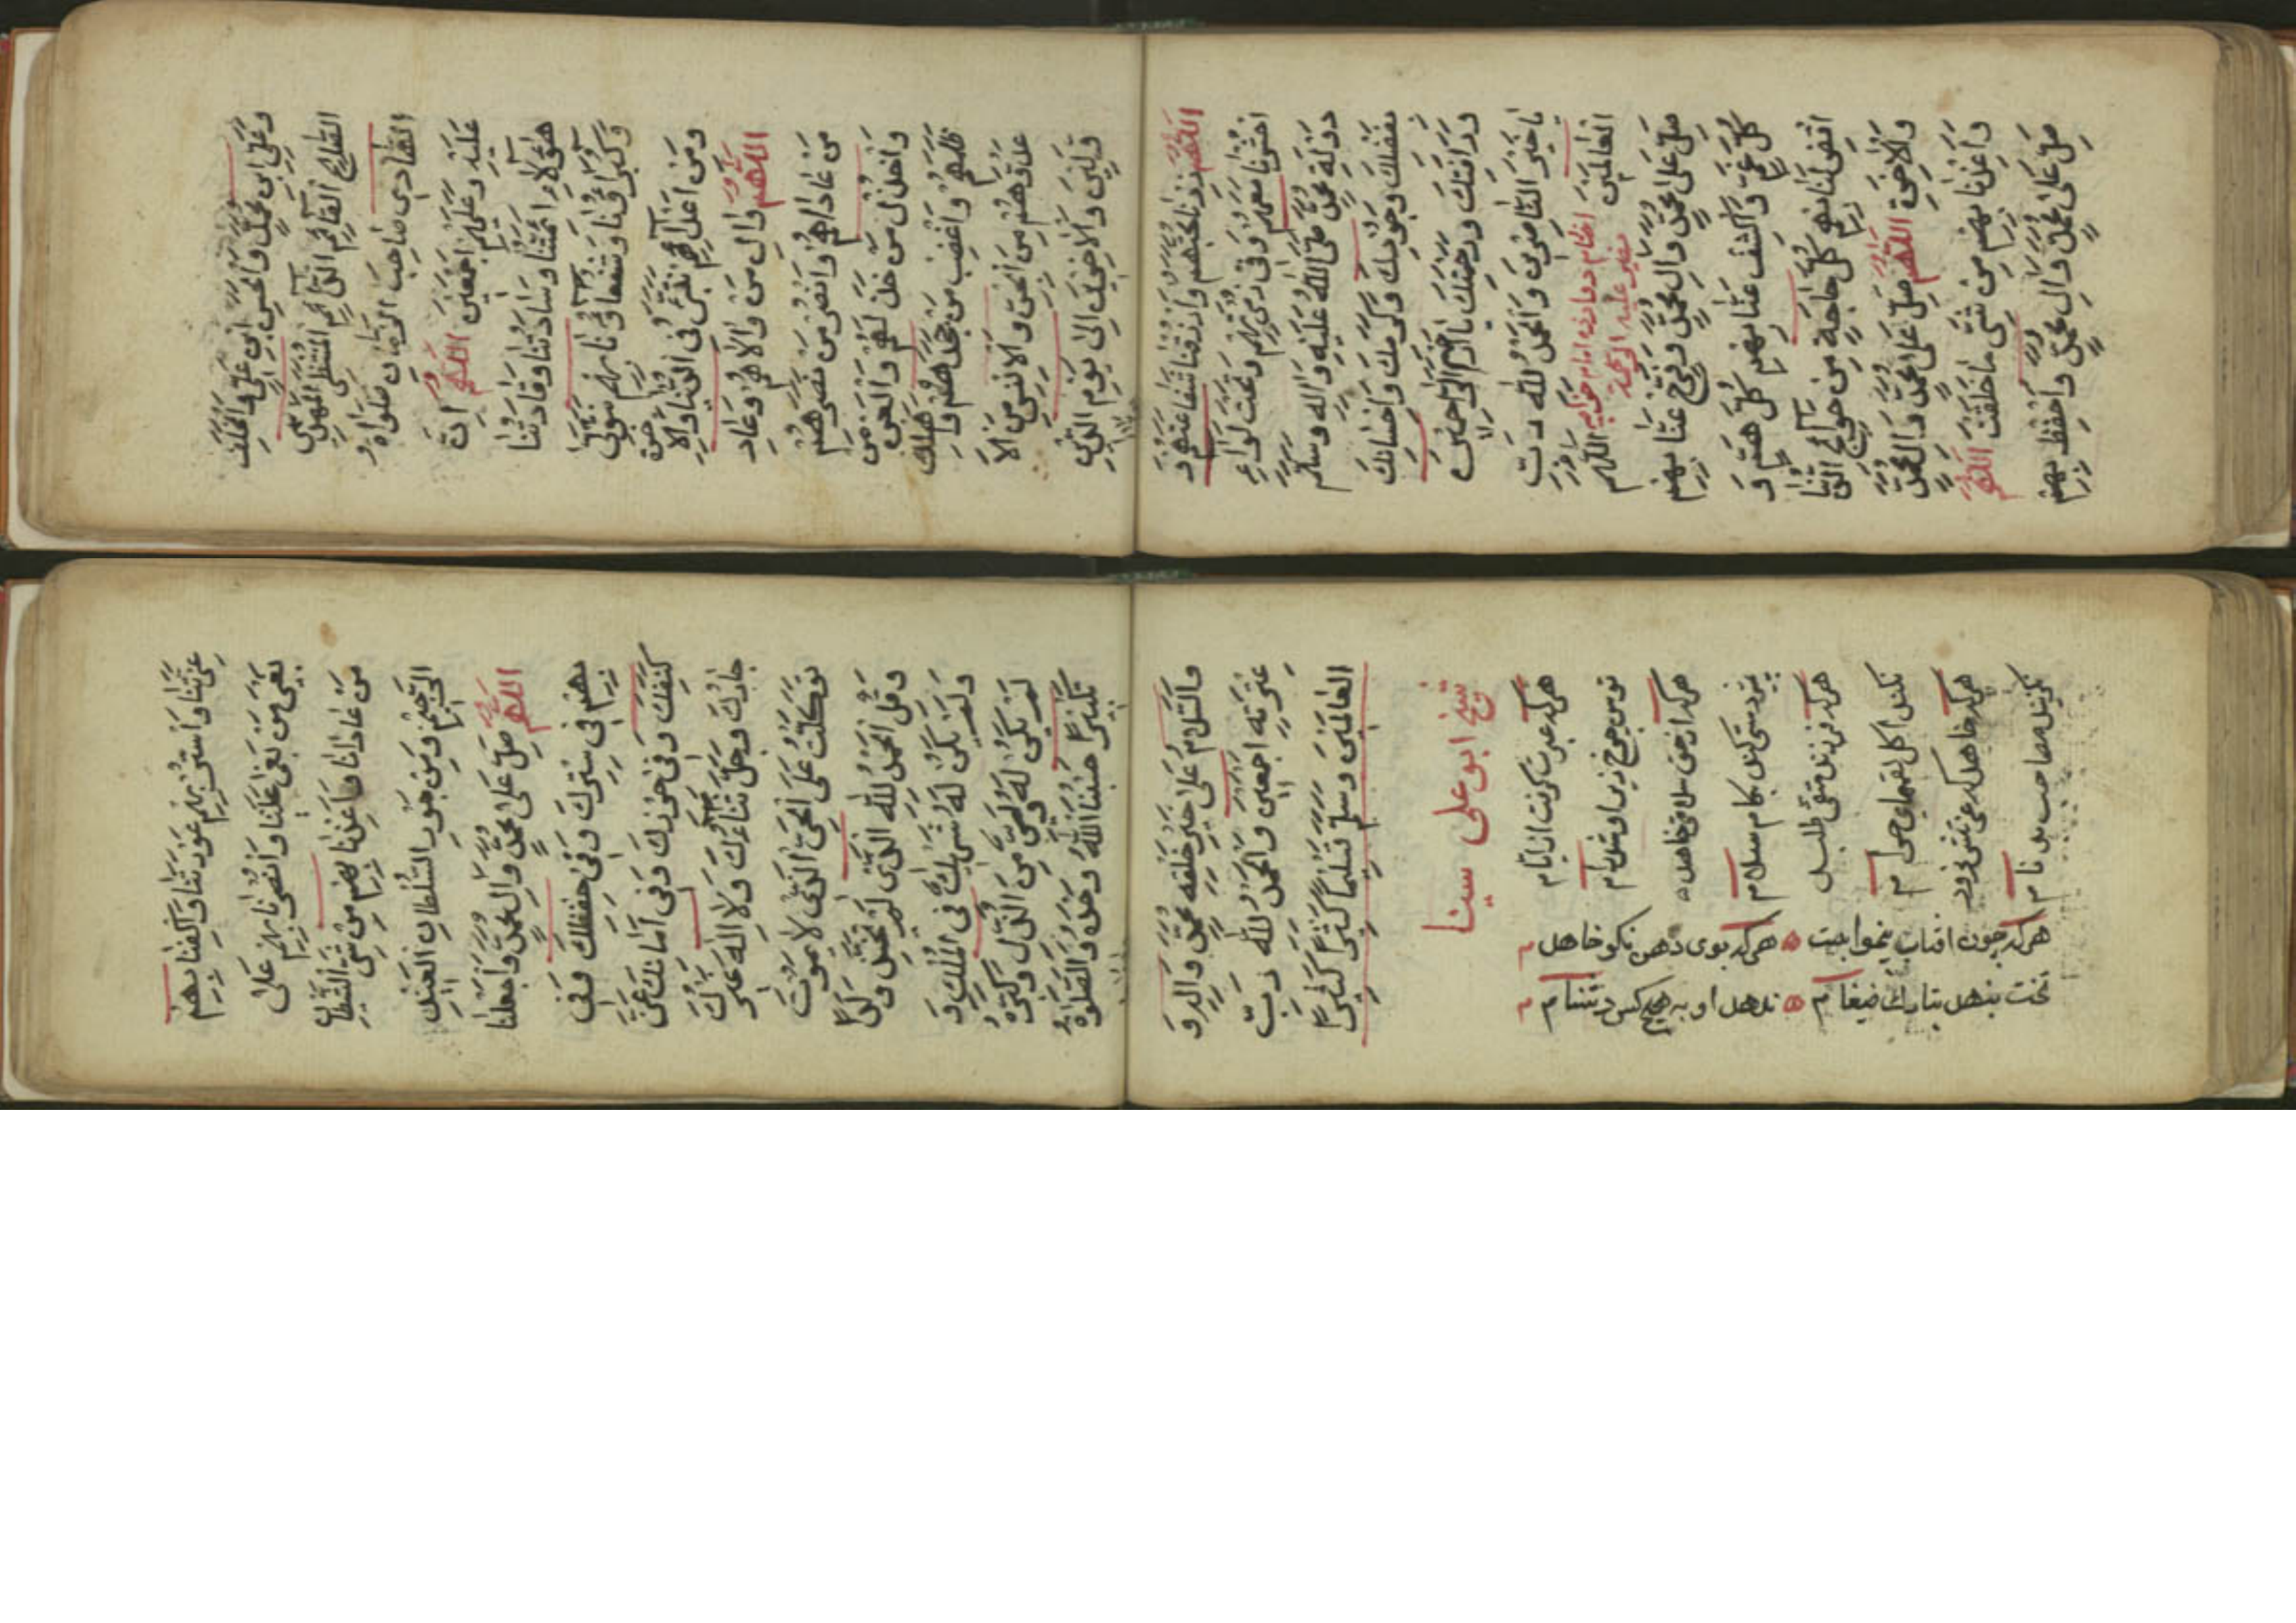 وَعَلِيِّ ابْنِ مُحَمَّدٍ وَالْحَسَنِ ابْنِ عَلِيٍّ وَالْخَلَفِ
الصَّالِحِ الْقَائِمِ الدَّائِمِ الْمُنْتَظَرِ الْمَهْدِيِّ
الهَادِي صَاحِبِ الزَّمَانِ صَلَوَاةُ
عَلَيْهِ وَعَلَيْهِمْ اَجْمَعِينَ اَللّٰهُمَّ اِنَّ
هٰؤُلَاءِ اَئِمَّتُنَا وَسَادَتُنَا وَقَادَتُنَا
وَكُبَرَاؤُنَا وَشُفَعَاؤُنَا بِهِمْ نَتَوَلّٰى
وَمِنْ اَعْدَائِهِمْ نَتَبَرَّءُ فِي الدُّنْيَا وَالْاٰخِرَةِ
اَللّٰهُمَّ وَالِ مَنْ وَالَاهُمْ وَعَادِ
مَنْ عَادَاهُمْ وَانْصُرْ مَنْ نَصَرَهُمْ
وَاخْذُلْ مَنْ خَذَلَهُمْ وَالْعَنْ مَنْ
ظَلَمَهُمْ وَاغْضِبْ مَنْ جَحَدَهُمْ وَاَهْلِكْ
عَدُوَّهُمْ مِنَ الْجِنِّ وَالْاِنْسِ مِنَ الْاَ
وَّلِينَ وَالْاٰخِرِينَ اِلٰى يَوْمِ الدِّينِ
اَللّٰهُمَّ زِدْنَا مَحَبَّتَهُمْ وَارْزُقْنَا شَفَاعَتَهُمْ وَ
احْشُرْنَا مَعَهُمْ وَفِي زُمْرَتِهِمْ وَتَحْتَ لِوَاءِ
دَوْلَةِ مُحَمَّدٍ صَلَّى اللّٰهُ عَلَيْهِ وَاٰلِهِ وَسَلَّمَ
بِفَضْلِكَ وَجُودِكَ وَكَرَمِكَ وَاِحْسَانِكَ
وَرَأْفَتِكَ وَرَحْمَتِكَ يَا اَرْحَمَ الرَّاحِمِينَ
يَا خَيْرَ النَّاصِرِينَ وَالْحَمْدُ لِلّٰهِ رَبِّ
الْعَالَمِينَ
اللّٰهُمَّ
صَلِّ عَلٰى مُحَمَّدٍ وَاٰلِ مُحَمَّدٍ وَفَرِّجْ عَنَّا بِهِمْ
كُلَّ غَمٍّ وَاكْشِفْ عَنَّا بِهِمْ كُلَّ هَمٍّ وَ
اقْضِ لَنَا بِهِمْ كُلَّ حَاجَةٍ مِنْ حَوَائِجِ الدُّنْيَا
وَالْاٰخِرَةِ اَللّٰهُمَّ صَلِّ عَلٰى مُحَمَّدٍ وَاٰلِ مُحَمَّدٍ
وَاَعِذْنَا بِهِمْ مِنْ شَرِّ مَا خَلَقْتَ اَللّٰهُمَّ
صَلِّ عَلٰى مُحَمَّدٍ وَاٰلِ مُحَمَّدٍ وَاحْفَظْ بِهِمْ
وَاسْتُرْ بِهِمْ عَوْرَتَنَا وَاكْفِنَا بِهِمْ
بَغْيَ مَنْ بَغٰى عَلَيْنَا وَانْصُرْنَا بِهِمْ عَلٰى
مَنْ عَادَانَا وَاَعِذْنَا بِهِمْ مِنْ شَرِّ الشَّيْطَانِ
الرَّجِيمِ وَمِنْ جَوْرِ السُّلْطَانِ الْعَنِيدِ
اَللّٰهُمَّ صَلِّ عَلٰى مُحَمَّدٍ وَاٰلِ مُحَمَّدٍ وَاجْعَلْنَا
بِهِمْ فِي سِتْرِكَ وَفِي حِفْظِكَ وَفِي
كَنَفِكَ وَفِي حِرْزِكَ وَفِي اَمَانِكَ عَزَّ
جَارُكَ وَجَلَّ ثَنَاءُكَ وَلَا اِلٰهَ غَيْرُكَ
تَوَكَّلْتُ عَلَى الْحَيِّ الَّذِي لَا يَمُوتُ
وَقُلِ الْحَمْدُ لِلّٰهِ الَّذِي لَمْ يَتَّخِذْ وَلَدًا
وَلَمْ يَكُنْ لَهُ شَرِيكٌ فِي الْمُلْكِ وَ
لَمْ يَكُنْ لَهُ وَلِيٌّ مِنَ الذُّلِّ وَكَبِّرْهُ
تَكْبِيرًا حَسْبُنَا اللّٰهُ وَحْدَهُ وَالصَّلَوٰةُ
وَالسَّلَامُ عَلٰى خَيْرِ خَلْقِهِ مُحَمَّدٍ وَاٰلِهِ وَ
عِتْرَتِهِ اَجْمَعِينَ وَالْحَمْدُ لِلّٰهِ رَبِّ
الْعَالَمِينَ وَسَلَّمَ تَسْلِيمًا كَثِيرًا كَثِيرًا
شیخ ابو علی سینا
هرکه عبرت کرفت از ایام
هرکه از حق سلامتی خاهد
هرکه فرزند متقی طلبد
نکند اکل لقمهای حرام
نکزیند مصاحب بد نام
هرکه بوی دهن نکو خاهد
ندهد او به هیچ کس دشنام